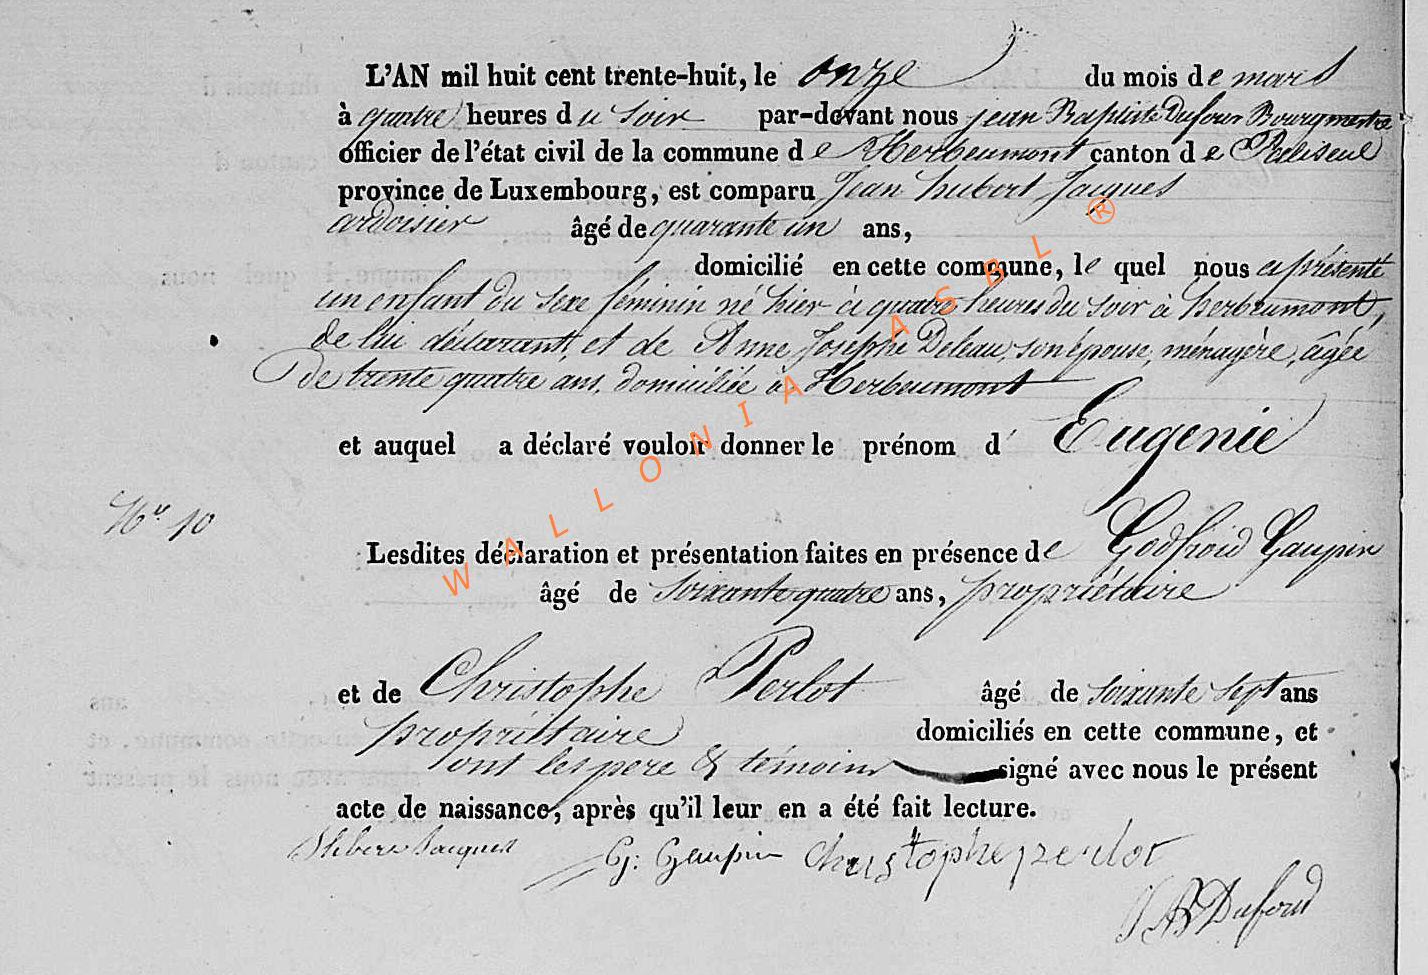 L'AN mil huit cent trente-huit, le onze du mois de mars
à quatre heures du soir par-devant nous jean Baptiste Dufour Bourgmestre
officier de l'état civil de la commune de Herbeumont canton de Paliseul
province de Luxembourg, est comparu Jean hubert Jacques
ardoisier âgé de quarante un ans,
domicilié en cette commune, le quel nous a présenté
un enfant du sexe féminin né hier à quatre heures du soir à herbeumont,
de lui déclarant, et de Anne Josephe Deleau, son épouse, ménagère, agée
De trente quatre ans, domiciliée à Herbeumont
et auquel a déclaré vouloir donner le prénom d'Eugenie
Nº 10
Lesdites déclaration et présentation faites en présence de Godfroid Gaupin
âgé de soixante quatre ans, propriétaire
et de Christophe Perlot âgé de soixante sept ans
propriétaire domiciliés en cette commune, et
ont les pere & témoins signé avec nous le présent
acte de naissance, après qu'il leur en a été fait lecture.
Jacques G: Gaupin Christophe perlot
JB Dufour
WALLONIA ASBL ®